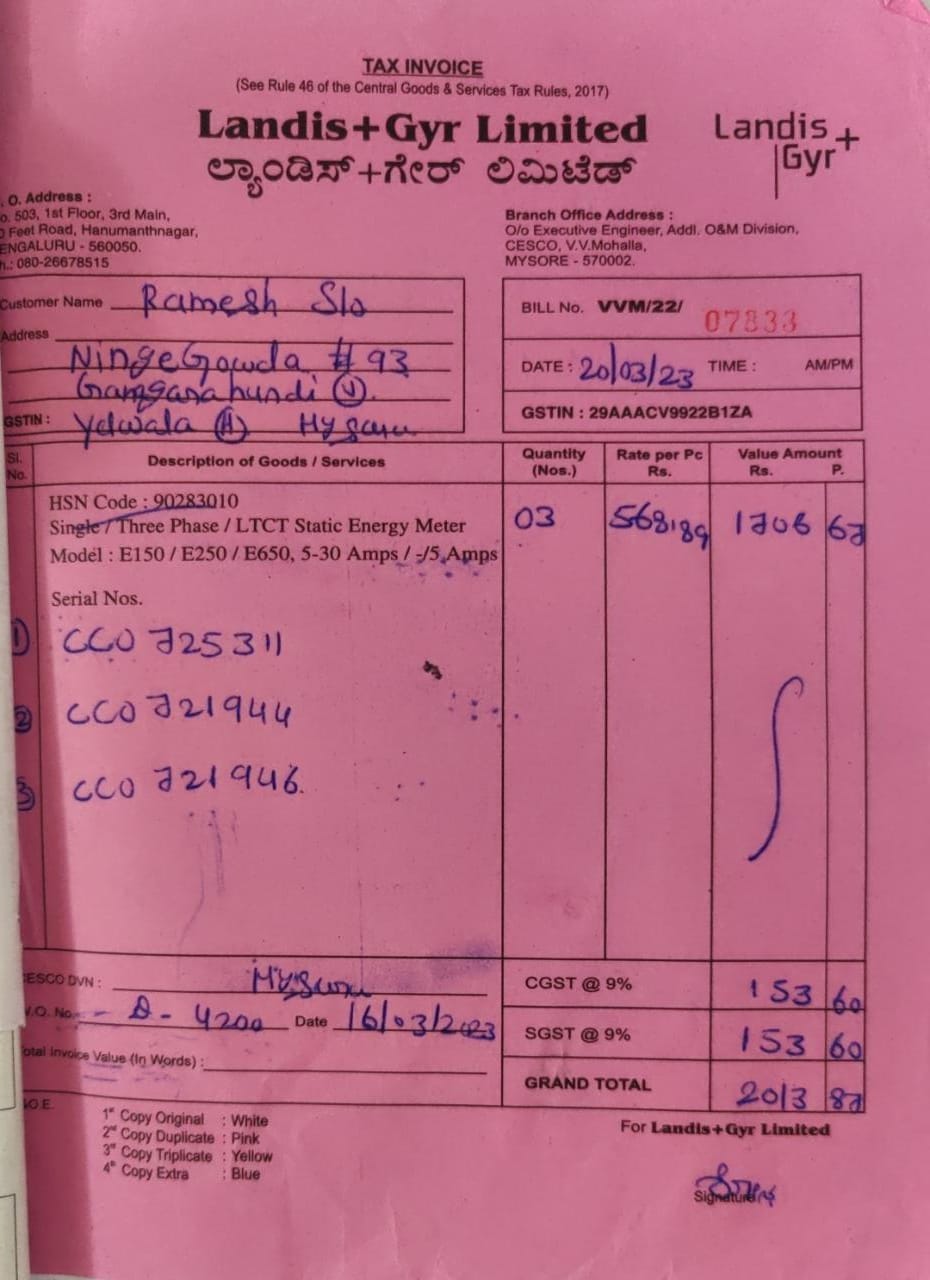 TAX INVOICE
(See Rule 46 of the Central Goods & Services Tax Rules, 2017)
Landis+Gyr Limited
ಲ್ಯಾಂಡಿಸ್+ಗೇರ್ ಲಿಮಿಟೆಡ್
Landis
Gyr+
. O. Address :
o. 503, 1st Floor, 3rd Main,
Feet Road, Hanumanthnagar,
ENGALURU - 560050.
h.: 080-26678515
Branch Office Address :
O/o Executive Engineer, Addl. O&M Division,
CESCO, V.V.Mohalla,
MYSORE - 570002.
Customer Name Ramesh S/o
Address
NingeGowda # 93
Gamgarahundi (V)
GSTIN : Yelwala (H) Mysuru
BILL No. VVM/22/ 07833
DATE : 20/03/23 TIME : AM/PM
GSTIN : 29AAACV9922B1ZA
Sl. No. Description of Goods / Services Quantity (Nos.) Rate per Pc Rs. Value Amount Rs. P.
HSN Code : 90283010
Single / Three Phase / LTCT Static Energy Meter 03 568.89 1706 67
Model : E150 / E250 / E650, 5-30 Amps / -/5 Amps
Serial Nos.
1) CCO 725311
2) CCO 721944
3) CCO 721946.
CESCO DVN : Mysuru
V.O. No. - D - 4200 Date 16/03/2023
Total Invoice Value (In Words) :
CGST @ 9% 153 60
SGST @ 9% 153 60
GRAND TOTAL 2013 87
O.E.
1st Copy Original : White
2nd Copy Duplicate : Pink
3rd Copy Triplicate : Yellow
4th Copy Extra : Blue
For Landis+Gyr Limited
Signature